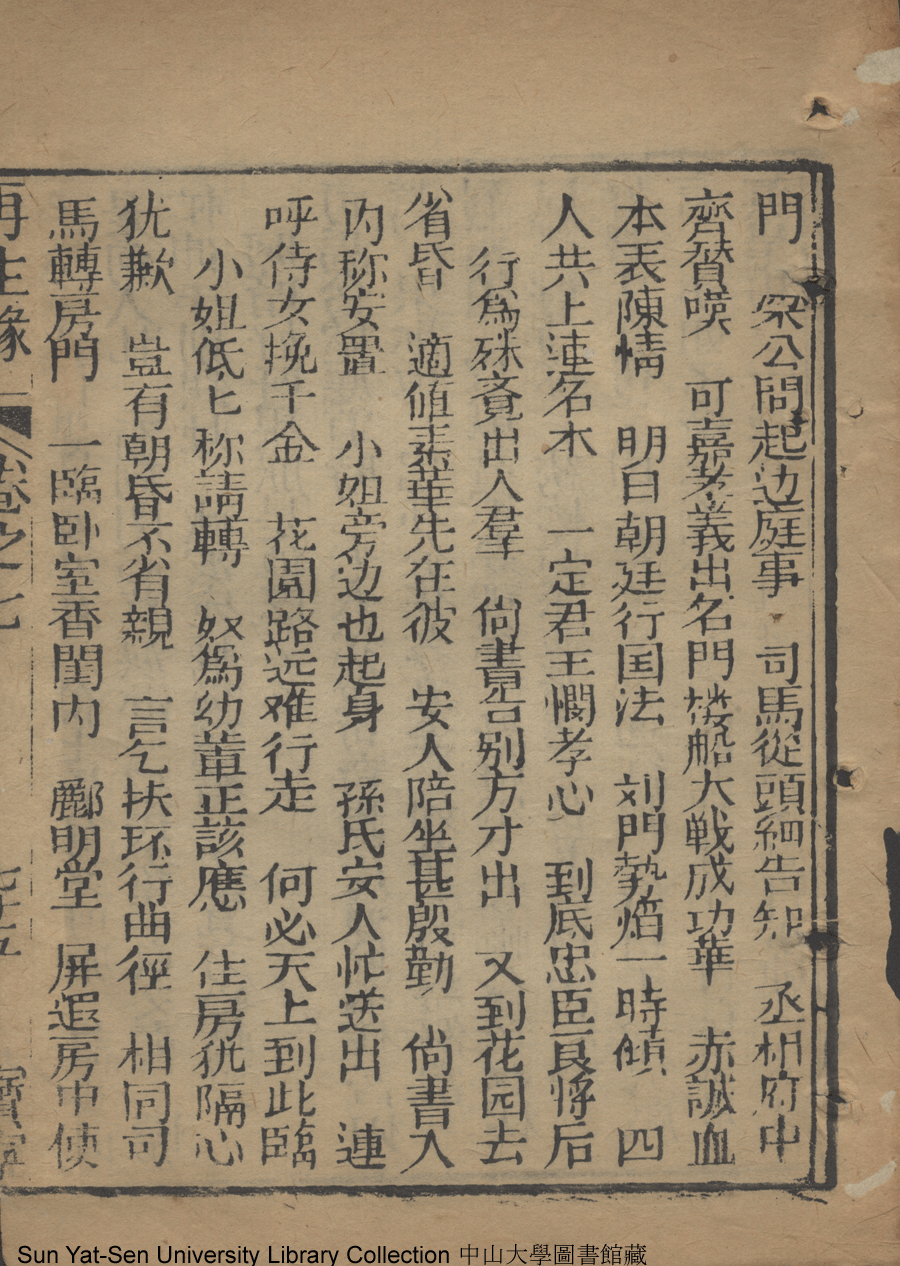 門　梁公問起边庭事　司馬從頭細告知　丞相府中
齊賛嘆　可嘉孝義出名門　破船大戰成功華　赤誠血
本表陳情　明日朝廷行国法　刘門勢焰一時傾　四
人共上連名本　一定君王憫孝心　到底忠臣良将后
行為殊竟出人羣　尙書告别方才出　又到花园去
省昏　適値素華先在彼　安人陪坐甚殷勤　尙書入
内称安置　小姐旁边也起身　孫氏安人忙送出　連
呼侍女挽千金　花園路远难行走　何必天上到此臨
小姐低匕称請轉　奴為幼輩正該應　住房犹隔心
犹歉　豈有朝昏不省親　言乞扶环行曲徑　相同司
馬轉房門　一臨卧室香閨内　酈明堂　屏退房中使
再生緣　卷之十七　七十五　寶寧
Sun Yat-Sen University Library Collection 中山大學圖書館藏